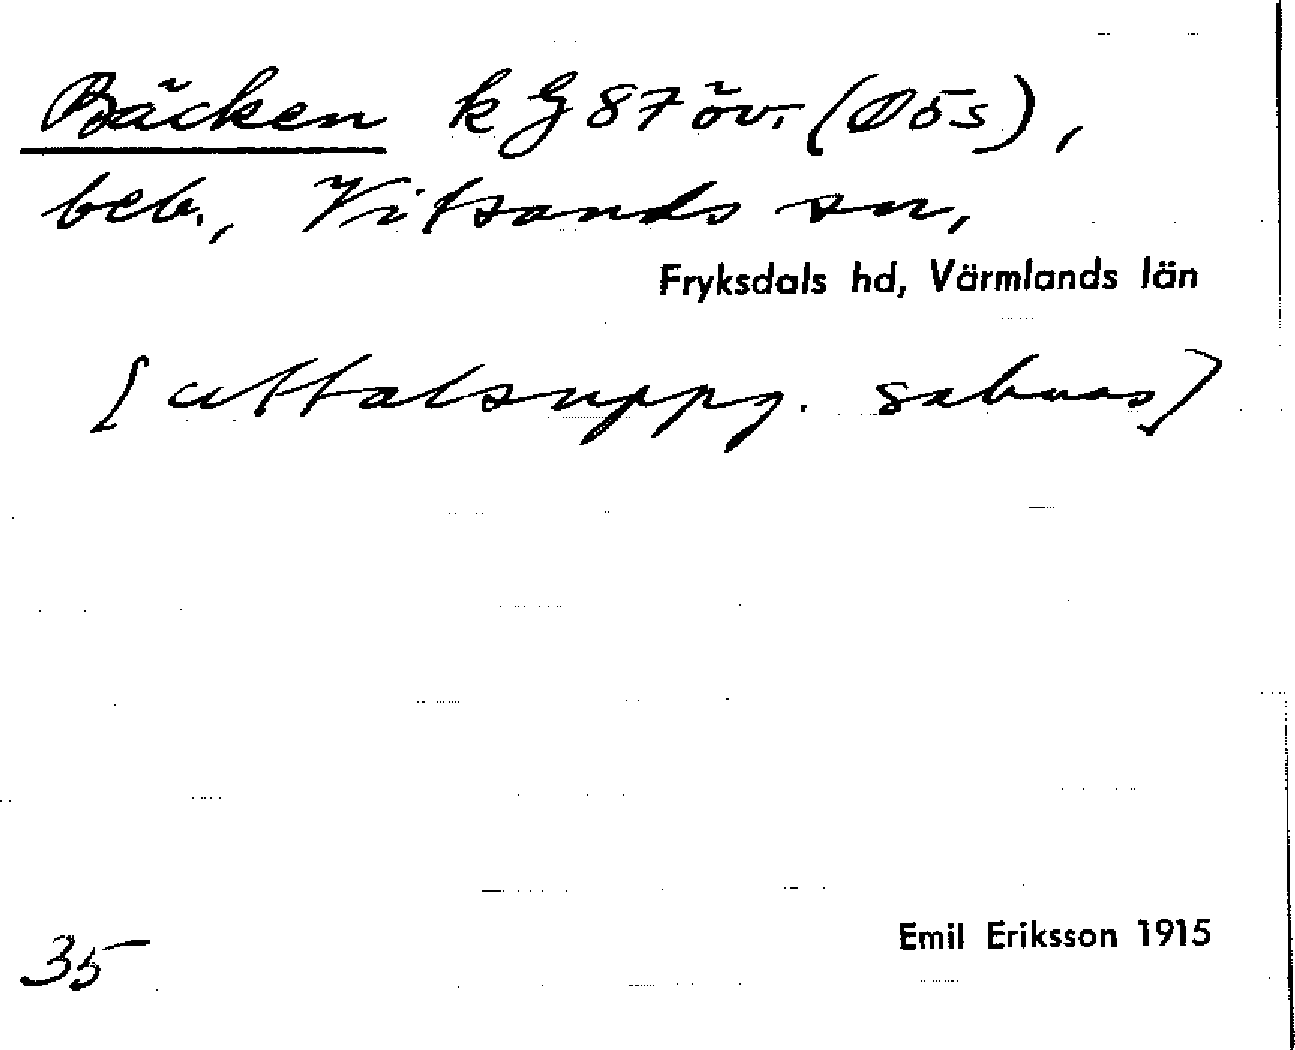 Bäcken k G 87 öv. (Ø5s),
beb., Vitsands sn,
Fryksdals hd, Värmlands län
[uttalsuppg. saknas]
35
Emil Eriksson 1915